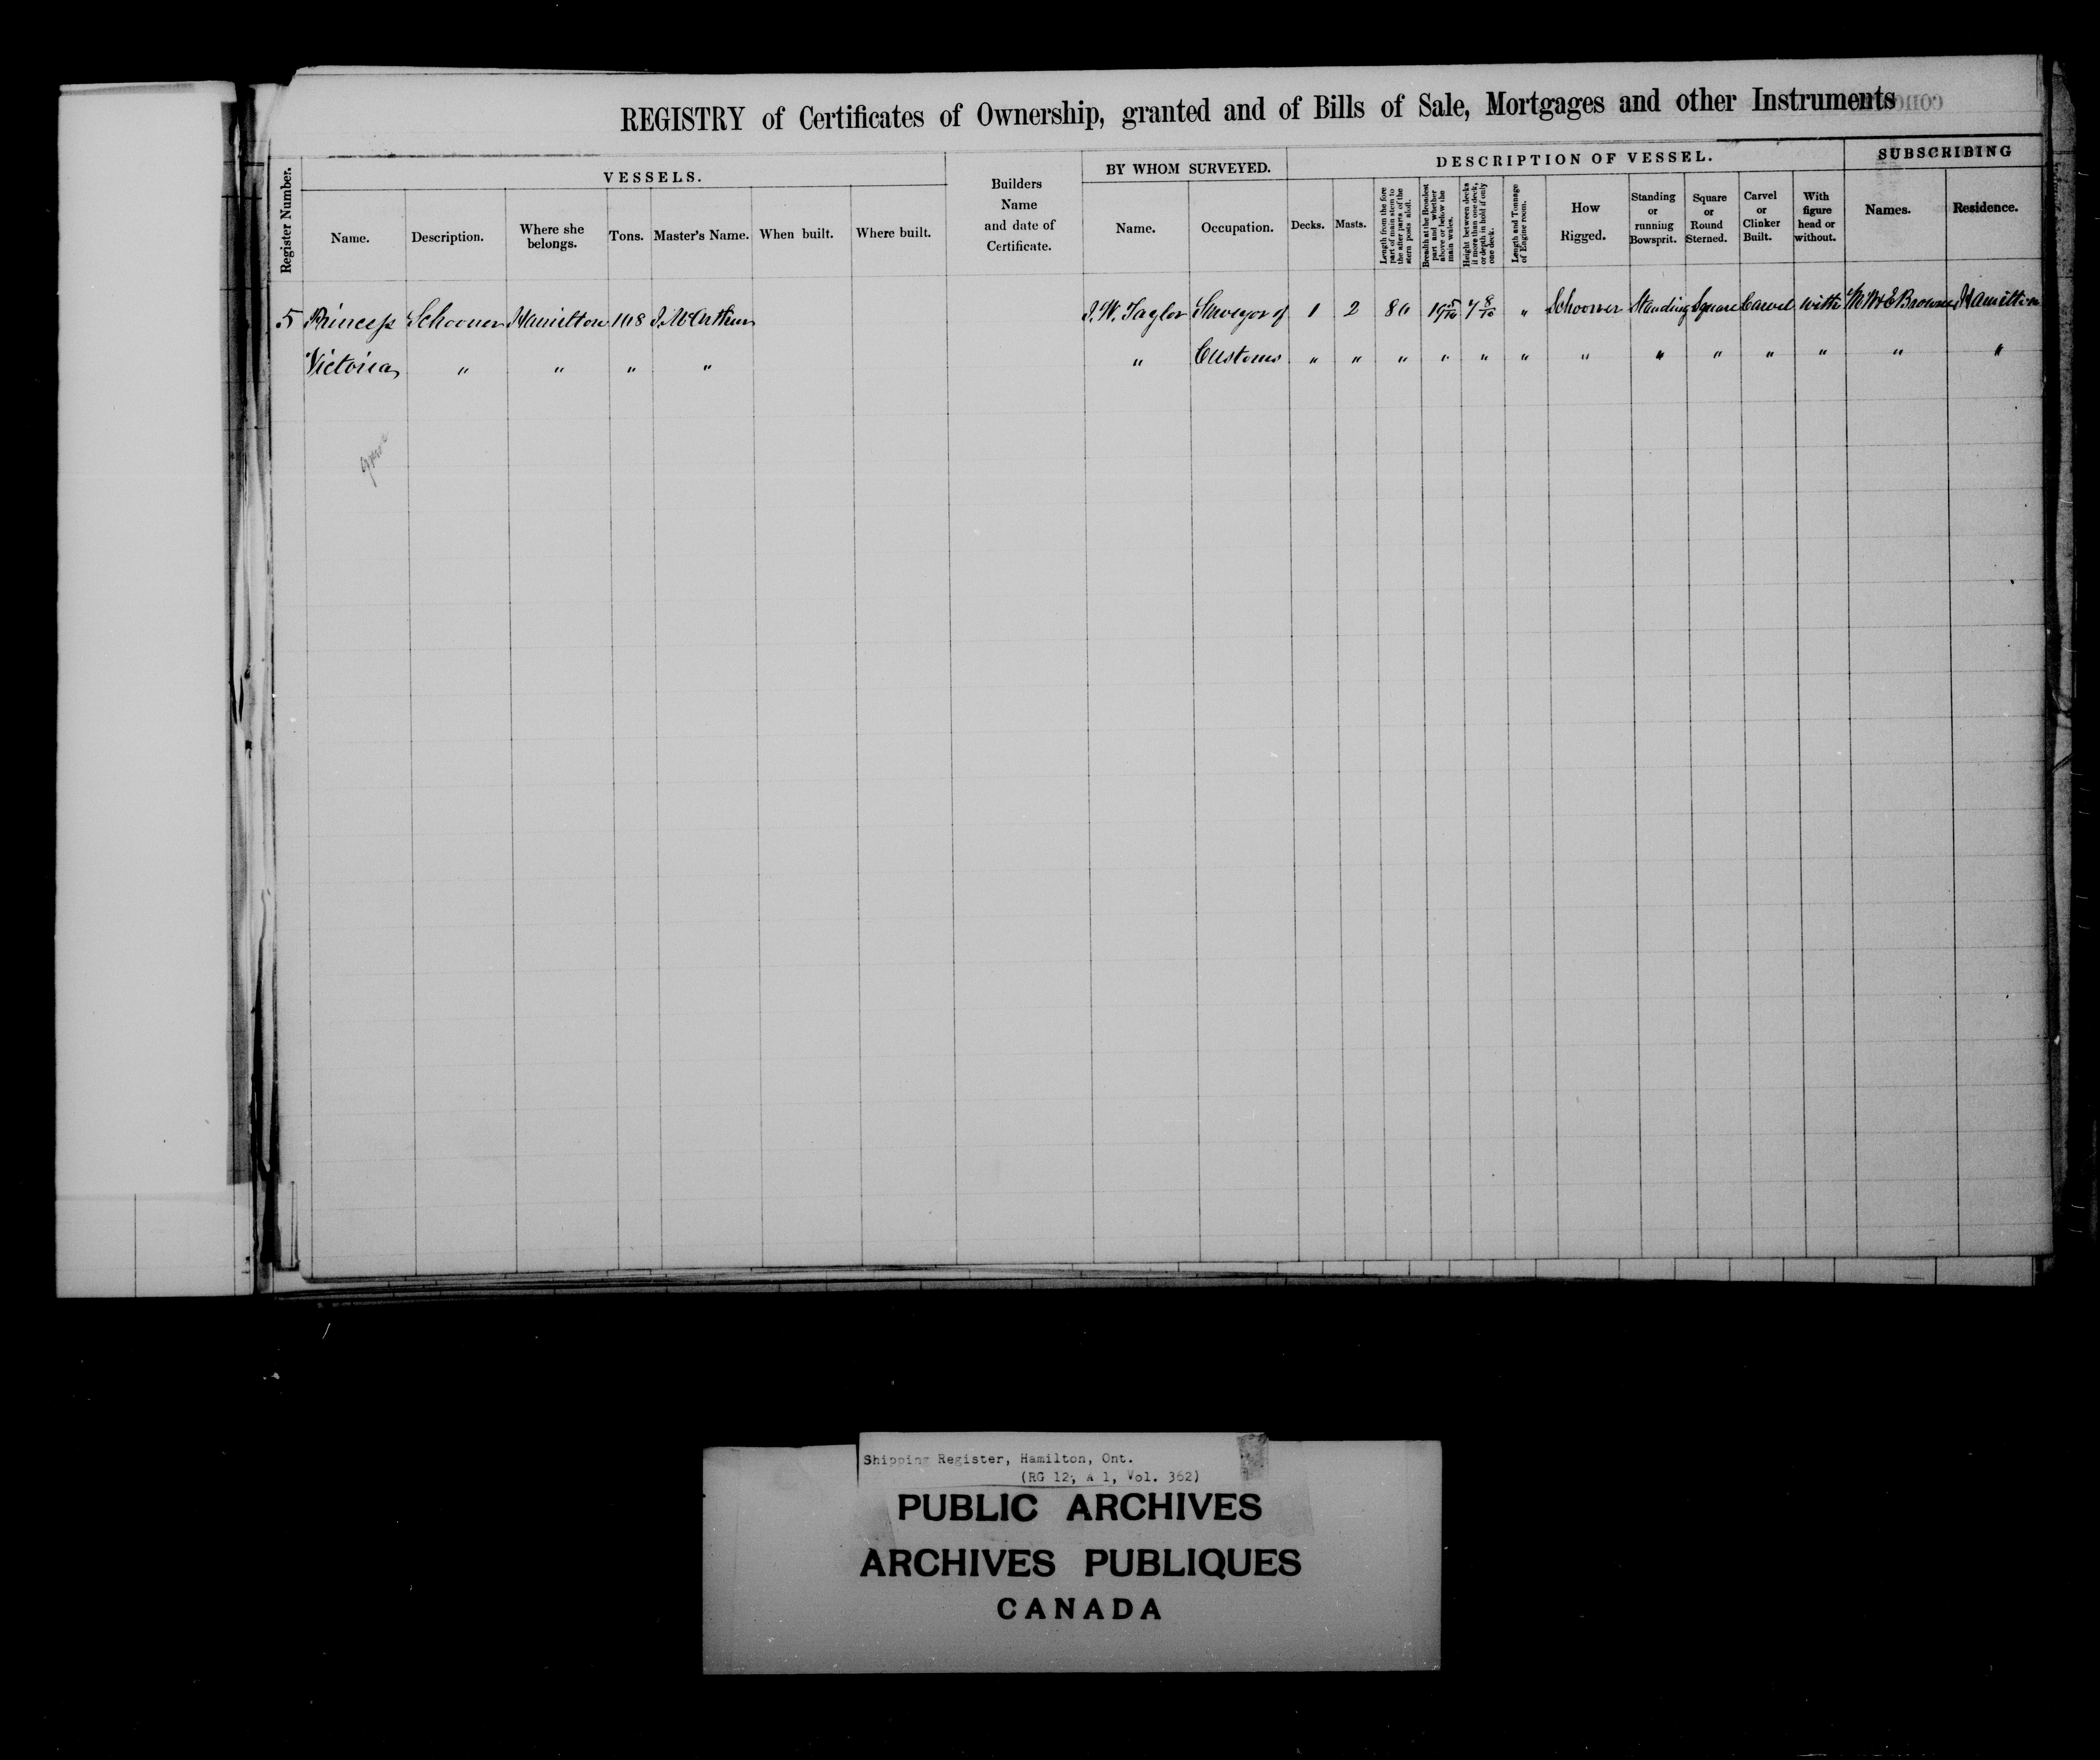 REGISTRY of Certificates of Ownership, granted and of Bills of Sale, Mortgages and other Instruments
VESSELS.
BY WHOM SURVEYED.
DESCRIPTION OF VESSEL.
SUBSCRIBING
Register Number.
Name.
Description.
Where she
belongs.
Tons.
Master's Name.
When built.
Where built.
Builders
Name
and date of
Certificate.
Name.
Occupation.
Decks.
Masts.
Length from the fore
part of main stem to
the after parts of the
stern posts aloft.
Breadth at the Broadest
part and whether
above or below the
main wales.
Height between decks
if more than one deck,
or depth in hold if only
one deck.
Length and Tonnage
of Engine room.
How
Rigged.
Standing
or
running
Bowsprit.
Square
or
Round
Sterned.
Carvel
or
Clinker
Built.
With
figure
head or
without.
Names.
Residence.
5 Princess Schooner Hamilton 108 J. McArthur J. W. Taylor Surveyor of 1 2 80 19 5/10 7 8/10 " Schooner Standing Square Carvel with M W & E Browne Hamilton
Victoria " " " " " Customs " " " " " " " " " " " " "
Shipping Register, Hamilton, Ont.
(RG 12, A 1, Vol. 362)
PUBLIC ARCHIVES
ARCHIVES PUBLIQUES
CANADA